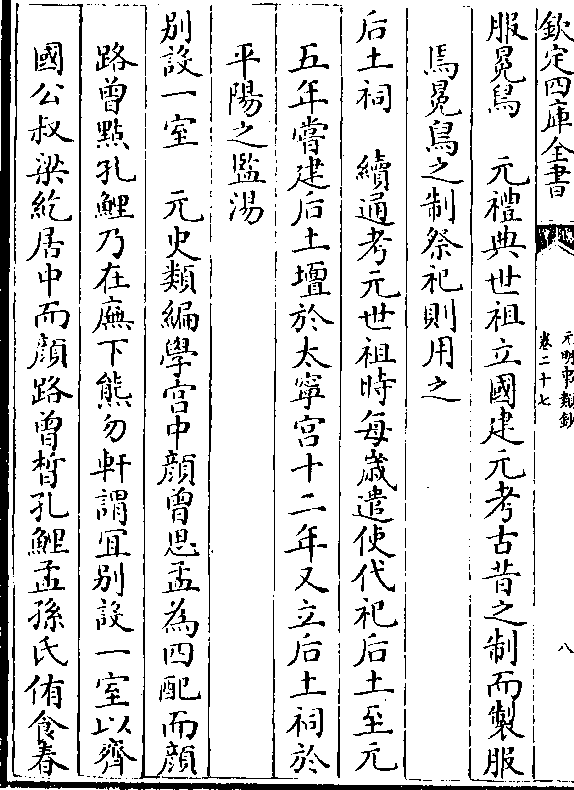 欽定四庫全書
元明事類鈔
卷二十七
八
服冕舃　元禮典世祖立國建元考古昔之制而製服
焉冕舃之制祭祀則用之
后土祠　續通考元世祖時每歲遣使代祀后土至元
五年嘗建后土壇於太寧宮十二年又立后土祠於
平陽之監湯
別設一室　元史類編學宮中顔曾思孟為四配而顔
路曾點孔鯉乃在廡下熊勿軒謂宜别設一室以齊
國公叔梁紇居中而顔路曾晳孔鯉孟孫氏侑食春